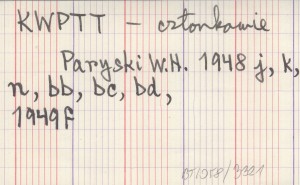 KWPTT – członkowie
Paryski W.H. 1948 j, k,
n, bb, bc, bd,
1949f